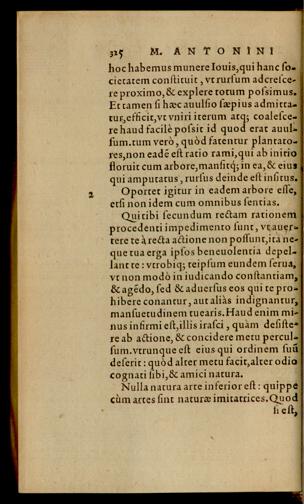 325 M. ANTONINI
hoc habemus munere Iouis, qui hanc so-
cietatem constituit, vt rursum adcresce-
re proximo, & explere totum possimus.
Et tamen si hæc auulsio sæpius admitta-
tur, efficit, vt vniri iterum atq; coalesce-
re haud facilè possit id quod erat auul-
sum. tum verò, quòd fatentur plantato-
res, non eadē est ratio rami, qui ab initio
floruit cum arbore, mansitq; in ea, & eius
qui amputatus, rursus deinde est insitus.
2 Oportet igitur in eadem arbore esse,
etsi non idem cum omnibus sentias.
Qui tibi secundum rectam rationem
procedenti impedimento sunt, vt auer-
tere te à recta actione non possunt, ita ne-
que tua erga ipsos beneuolentia depel-
lant te: vtrobiq; teipsum eundem serua,
vt non modò in iudicando constantiam,
& agēdo, sed & aduersus eos qui te pro-
hibere conantur, aut aliàs indignantur,
mansuetudinem tuearis. Haud enim mi-
nus infirmi est, illis irasci, quàm desiste-
re ab actione, & concidere metu percul-
sum. vtrunque est eius qui ordinem suū
deserit: quòd alter metu facit, alter odio
cognati sibi, & amici natura.
Nulla natura arte inferior est: quippe
cùm artes sint naturæ imitatrices. Quod
si est,